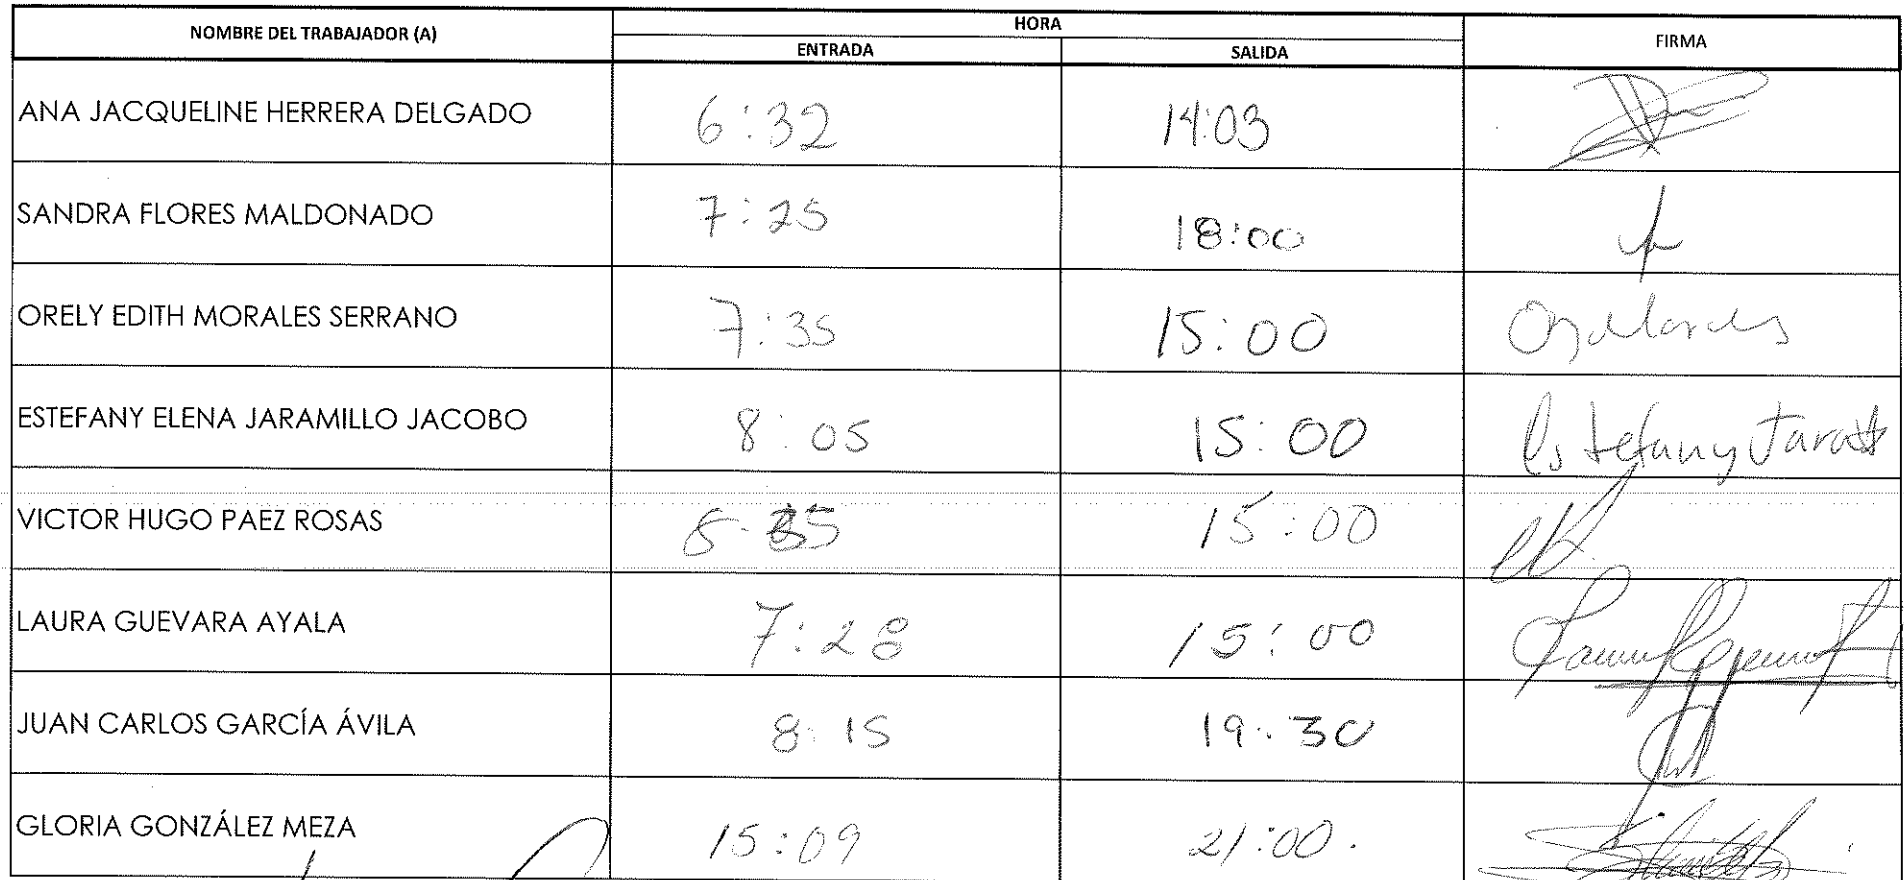 NOMBRE DEL TRABAJADOR (A) HORA FIRMA
ENTRADA SALIDA
ANA JACQUELINE HERRERA DELGADO 6:32 14:03
SANDRA FLORES MALDONADO 7:25 18:00
ORELY EDITH MORALES SERRANO 7:35 15:00
ESTEFANY ELENA JARAMILLO JACOBO 8:05 15:00 Estefany
VICTOR HUGO PAEZ ROSAS 15:00
LAURA GUEVARA AYALA 7:28 15:00
JUAN CARLOS GARCÍA ÁVILA 8:15 19:30
GLORIA GONZÁLEZ MEZA 15:09 21:00.